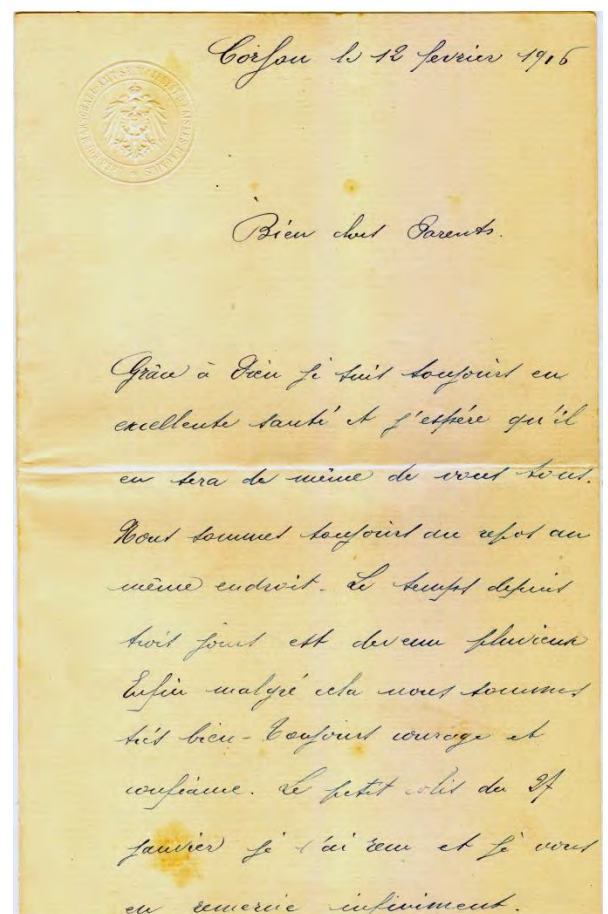 Corfou le 12 fevrier 1916
Bien chers Parents.
Grâce à Dieu je suis toujours en
excellente santé et j'espére qu'il
en sera de même de vous tous.
Nous sommes toujours au repos au
même endroit. Le temps depuis
trois jours est devenu pluvieux
Enfin malgré cela nous sommes
trés bien - Toujours courage et
confiance. Le petit colis du 27
janvier je l'ai recu et je vous
en remercie infiniment.